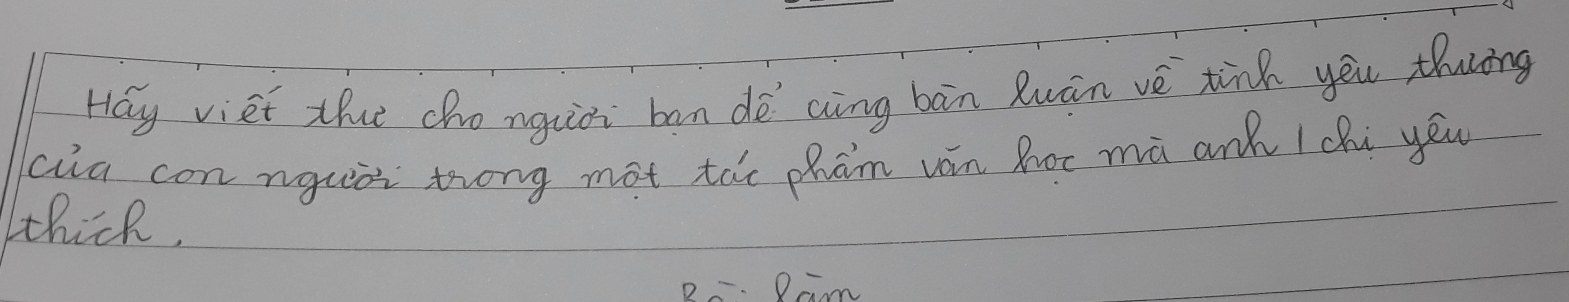 Hãy viết thư cho người bạn để cùng bàn luận về tình yêu thương
của con người trong một tác phẩm văn học mà anh / chị yêu
thích.
Bài làm